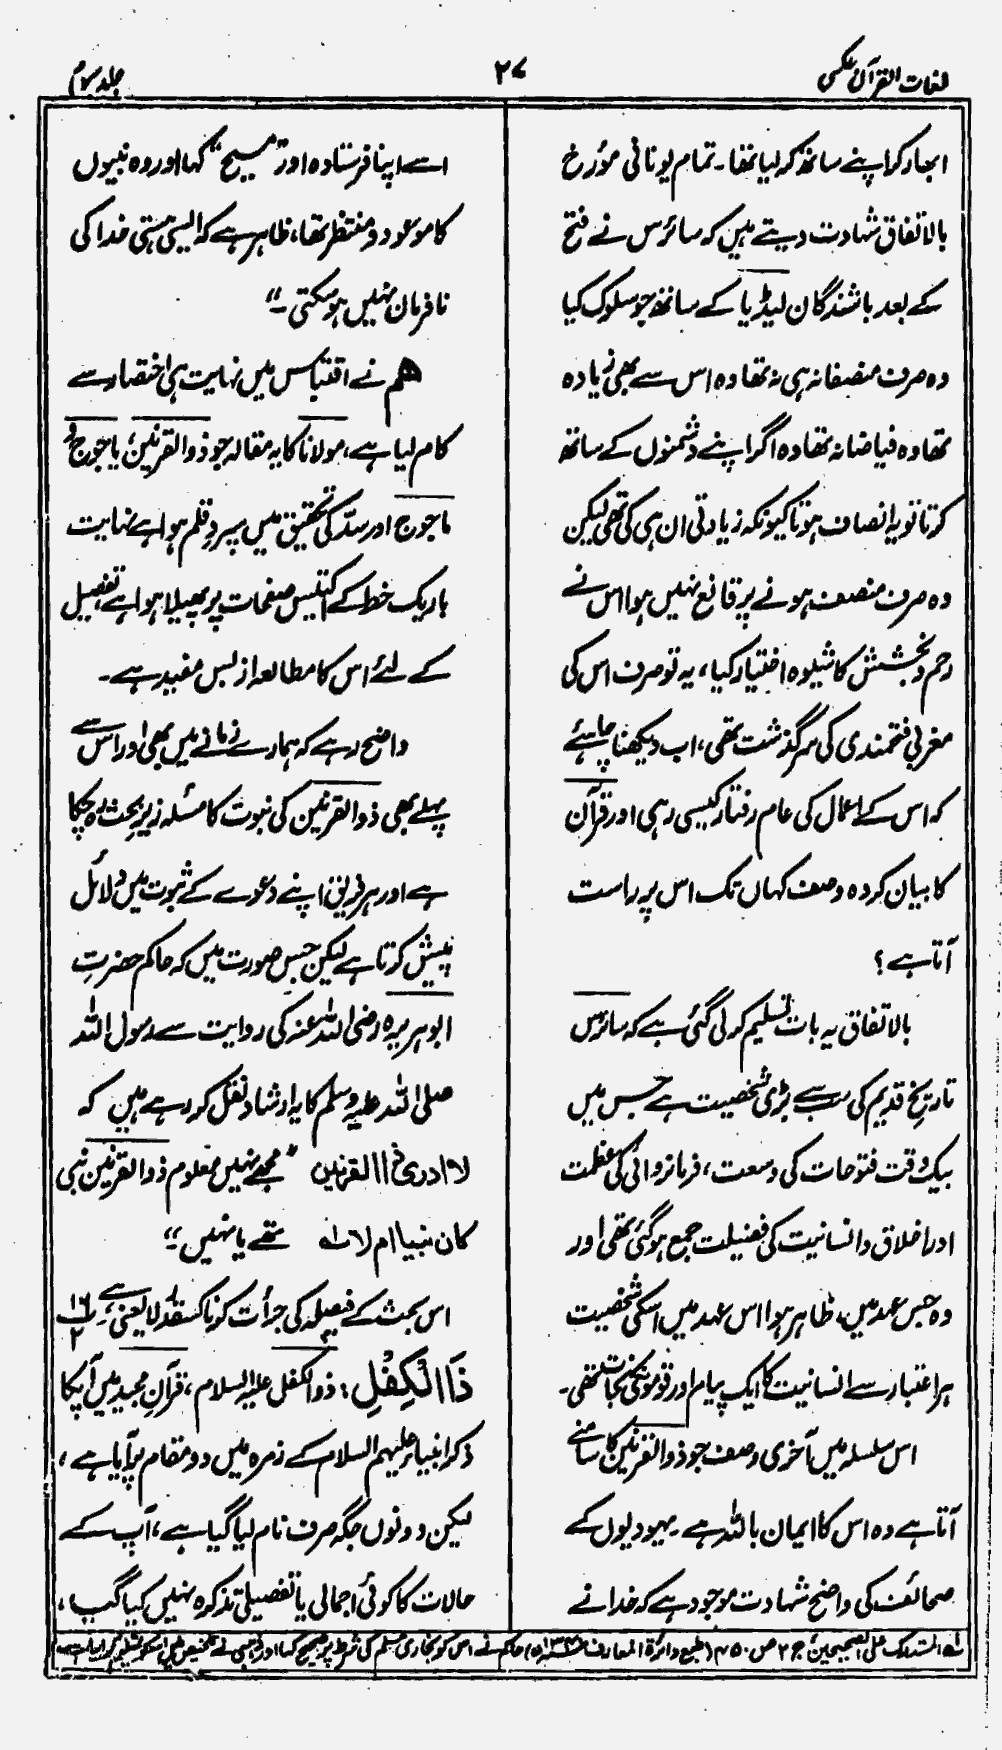 لغات القرآن عکسی
۲۷
جلد سوم
ابھار کر اپنے ساتھ کر لیا تھا۔ تمام یونانی مؤرخ
بالاتفاق شہادت دیتے ہیں کہ سائرس نے فتح
کے بعد باشندگان لیڈیا کے ساتھ جو سلوک کیا
وہ صرف منصفانہ ہی نہ تھا وہ اس سے بھی زیادہ
تھا وہ فیاضانہ تھا وہ اگر اپنے دشمنوں کے ساتھ
کرتا تو یہ انصاف ہوتا کیونکہ زیادتی ان ہی کی تھی لیکن
وہ صرف منصف ہونے پر قانع نہیں ہوا اس نے
رحم و بخشش کا شیوہ اختیار کیا، یہ تو صرف اس کی
مغربی فتحمندی کی سرگذشت تھی، اب دیکھنا چاہئے
کہ اس کے اعمال کی عام رفتار کیسی رہی اور قرآن
کا بیان کردہ وصف کہاں تک اس پر راست
آتا ہے؟
بالاتفاق یہ بات تسلیم کر لی گئی ہے کہ سائرس
تاریخ قدیم کی سب سے بڑی شخصیت ہے جس میں
بیک وقت فتوحات کی وسعت، فرمانروائی کی عظمت
اور اخلاق و انسانیت کی فضیلت جمع ہو گئی تھی اور
وہ جس عہد میں ظاہر ہوا اس عہد میں اسکی شخصیت
ہر اعتبار سے انسانیت کا ایک پیام اور قوموں کی نجات تھی۔
اس سلسلہ میں آخری وصف جو ذوالقرنین کا سامنے
آتا ہے وہ اس کا ایمان باللہ ہے۔ یہودیوں کے
صحائف کی واضح شہادت موجود ہے کہ خدا نے
اسے اپنا فرستادہ اور "مسیح" کہا اور وہ نبیوں
کا موعود و منتظر تھا، ظاہر ہے کہ ایسی ہستی خدا کی
نافرمان نہیں ہو سکتی۔"
ہم نے اقتباس میں نہایت ہی اختصار سے
کام لیا ہے، مولانا کا یہ مقالہ جو ذوالقرنین، یاجوج و
ماجوج اور سد کی تحقیق میں سپرد قلم ہوا ہے نہایت
باریک خط کے اکتیس صفحات پر پھیلا ہوا ہے، تفصیل
کے لئے اس کا مطالعہ ازبس مفید ہے۔
واضح رہے کہ ہمارے زمانے میں بھی اور اس سے
پہلے بھی ذوالقرنین کی نبوت کا مسئلہ زیرِ بحث رہ چکا
ہے اور ہر فریق اپنے دعوے کے ثبوت میں دلائل
پیش کرتا ہے لیکن جس صورت میں کہ حاکم حضرتِ
ابوہریرہ رضی اللہ عنہ کی روایت سے رسول اللہ
صلی اللہ علیہ وسلم کا یہ ارشاد نقل کر رہے ہیں کہ
لا ادری ذا القرنین "مجھے نہیں معلوم ذوالقرنین نبی
کان نبیا ام لا لہ تھے یا نہیں"۔
اس بحث کے فیصلہ کی جرأت کرنا کس قدر لایعنی ہے۔ پ ۱۶ ۲
ذَا الْکِفْلِ: ذوالکفل علیہ السلام، قرآن مجید میں آپکا
ذکر انبیاء علیہم السلام کے زمرہ میں دو مقام پر آیا ہے،
لیکن دونوں جگہ صرف نام لیا گیا ہے، آپ کے
حالات کا کوئی اجمالی یا تفصیلی تذکرہ نہیں کیا گیا،
لہ المستدرک علی الصحیحین، ج ۲ ص ۴۵۰ (طبع دائرۃ المعارف) حاکم نے اس کو بخاری و مسلم کی شرط پر صحیح کہا اور ذہبی نے تلخیص میں اسکو تسلیم کر لیا ہے